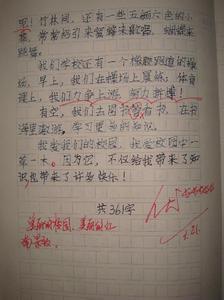 吧！竹林间，还有一些五颜六色的小
花，常常招引来蜜蜂来歌唱，蝴蝶来
跳舞。
我们学校还有一个橡胶跑道的操
场。早上，我们在操场上晨练，体育
课上，我们力争上游，努力
有空，我们去图书馆看书，在书
海里遨游，学习更多的知识。
我爱我们的校园，我爱校园中一
草一木。因为它，不仅给我带来了知
识也带来了许多快乐！
共361字
美丽的校园，美丽的
1.21.